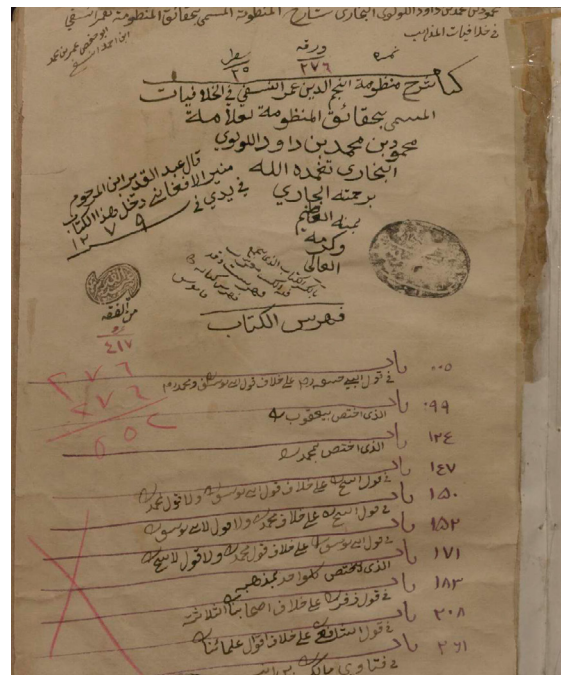 محمود بن محمد بن داود اللولوي البخاري شارح المنظومة المسمى بحقائق المنظومة لعمر النسفي
في خلافيات المذاهب
ابو حفص عمر بن محمد
ابن احمد النسفي
نمره ورقه سطر
٢٧٦ ٢٥
كتاب شرح منظومة النجم الدين عمر النسفي في الخلافيات
المسمى بحقائق المنظومة لعلامة
محمود بن محمد بن داود اللولوي
البخاري تغمده الله
برحمته الجاري
بمنه العظيم
وكرمه
العالي
قال عبد القدير ابن المرحوم
منير الافغاني دخل هذا الكتاب
في يدي في
١٢٧٩
من الفقه
نمرو
٤١٧
فهرس الكتاب
٢٧٦
٢٧٦
٥٥٢
٠٠٥ باب
في قول ابي حنيفه رح على خلاف قول ابي يوسف ومحمد رح
٠٩٩ باب
الذي اختص بيعقوب
١٢٤ باب
الذي اختص بمحمد
١٤٧ باب
في قول على خلاف قول ابي يوسف ولا قول محمد
١٥٠ باب
في قول على خلاف محمد ولا قول لابي يوسف
١٥٢ باب
في قول ابي يوسف على خلاف قول محمد ولا قول
١٧١ باب
الذي اختص كل واحد بمذهب
١٨٣ باب
في قول زفر على خلاف اصحابنا الثلاثة
٢٠٨ باب
في قول الشافعي على خلاف اقوال علمائنا
٢٦١ باب
في فتاوى مالك بن انس